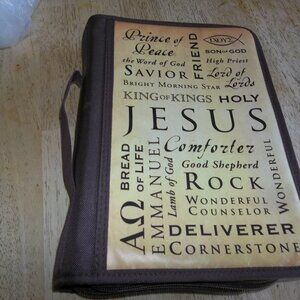 Prince of Peace
FRIEND
ΙΧΘΥΣ
SON OF GOD
the Word of God
High Priest
SAVIOR
Lord of Lords
BRIGHT MORNING STAR
KING OF KINGS HOLY
JESUS
BREAD OF LIFE
EMMANUEL
Lamb of God
Comforter
Good Shepherd
ROCK
WONDERFUL
WONDERFUL COUNSELOR
ΑΩ
DELIVERER
CORNERSTONE